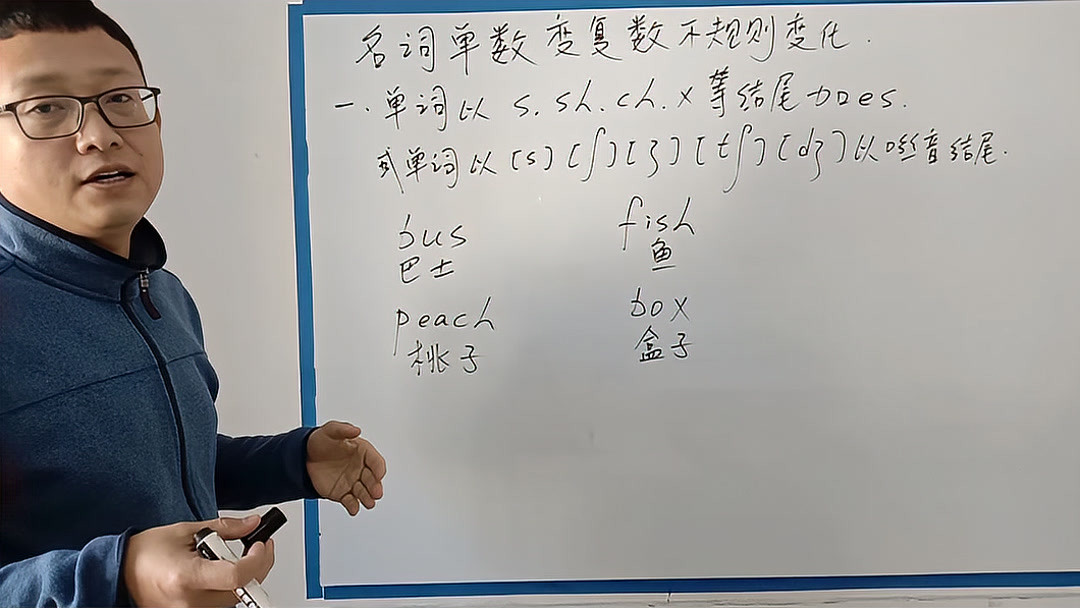 名词单数变复数不规则变化.
一.单词以 s.sh.ch.x等结尾加es.
或单词以[s][ʃ][ʒ][tʃ][dʒ]以咝音结尾.
bus fish
巴士 鱼
peach box
桃子 盒子